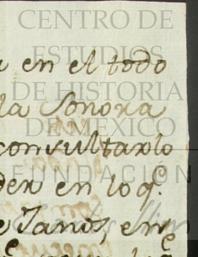 CENTRO DE
ESTUDIOS
DE HISTORIA
DE MÉXICO
FUNDACIÓN
en el todo
la Sonora
consultarlo
der en lo q.ᵉ
e Janos, en